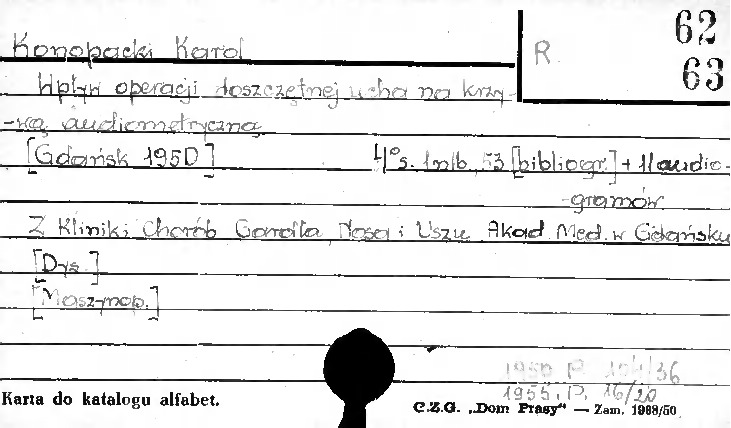 62
Konopacki Karol R. 63
Wpływ operacji doszczętnej ucha na krzy-
-wą audiometryczną
[Gdańsk 1950] 4° s. 1nlb, 53 [bibliogr.] + 11 audio-
-gramów.
Z Kliniki Chorób Gardła, Nosa i Uszu Akad. Med. w Gdańsku
[Dys.]
[Maszynop.]
1955. P. 16/20
Karta do katalogu alfabet.
C.Z.G. „Dom Prasy" — Zam. 1988/50